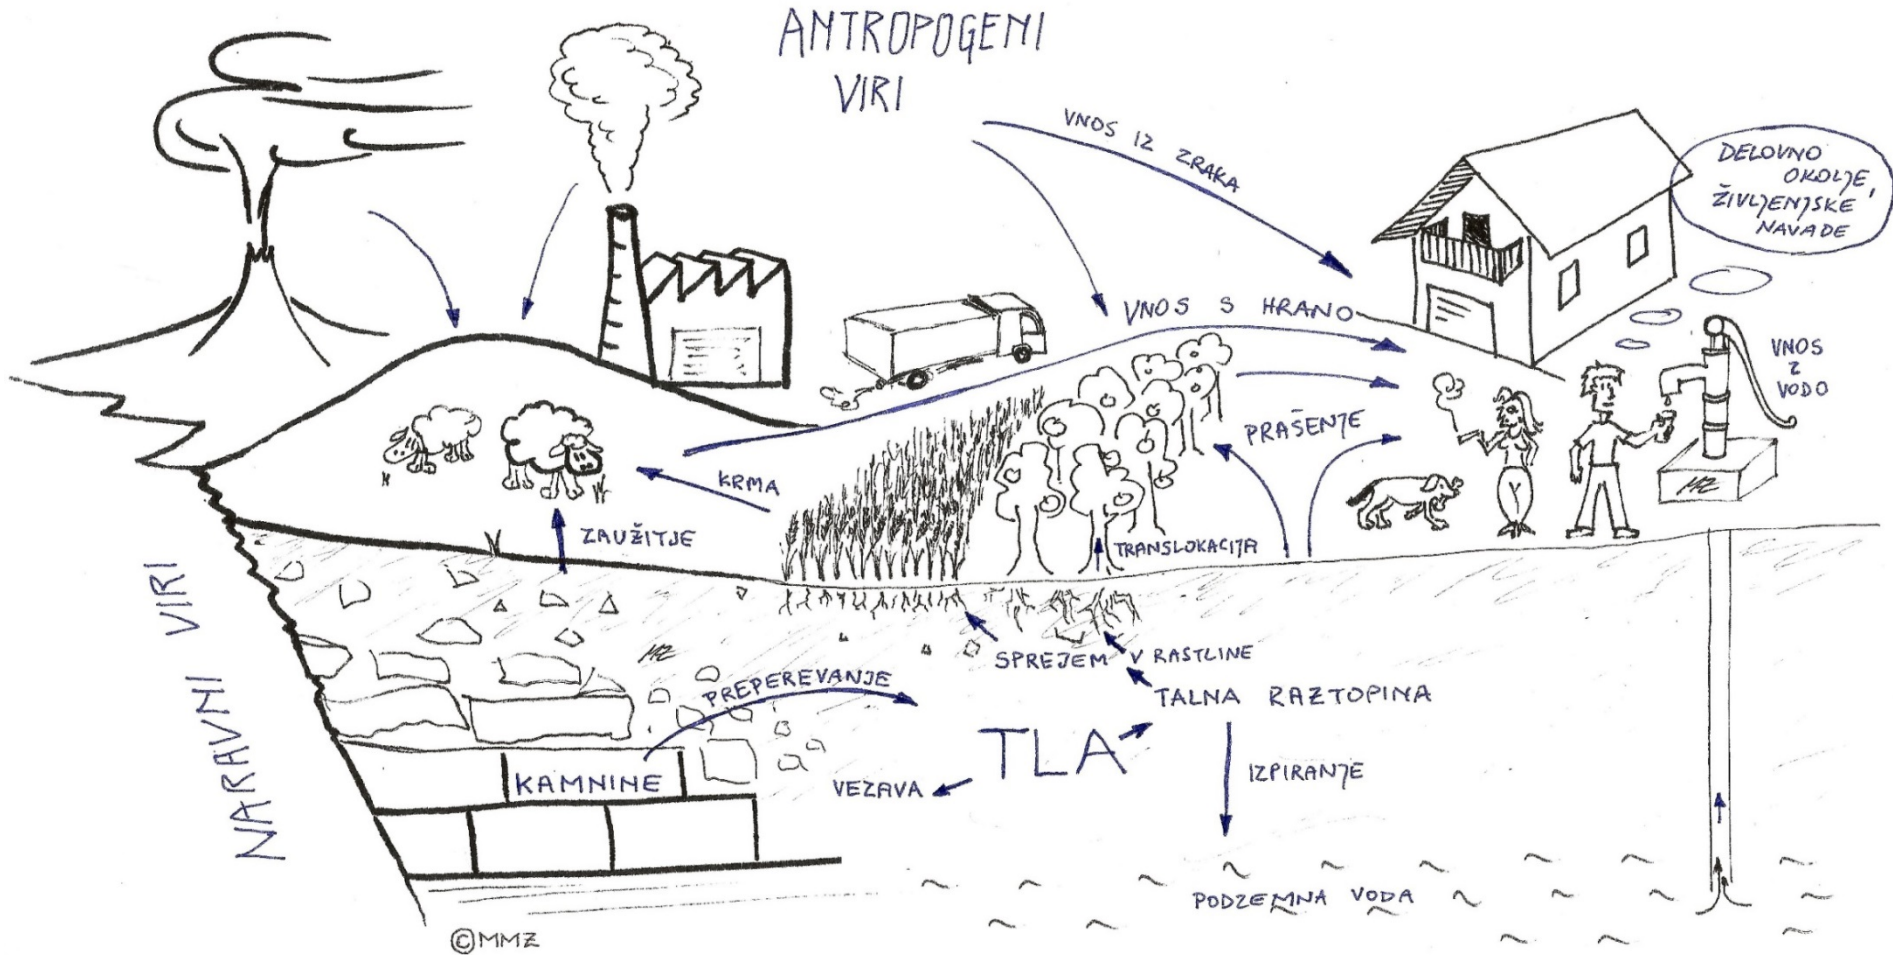 ANTROPOGENI
VIRI
VNOS IZ ZRAKA
DELOVNO
OKOLJE,
ŽIVLJENJSKE
NAVADE
VNOS S HRANO
VNOS
Z
VODO
PRAŠENJE
KRMA
ZAUŽITJE
TRANSLOKACIJA
NARAVNI VIRI
SPREJEM V RASTLINE
PREPEREVANJE
TALNA RAZTOPINA
TLA
KAMNINE
VEZAVA
IZPIRANJE
PODZEMNA VODA
©MMZ